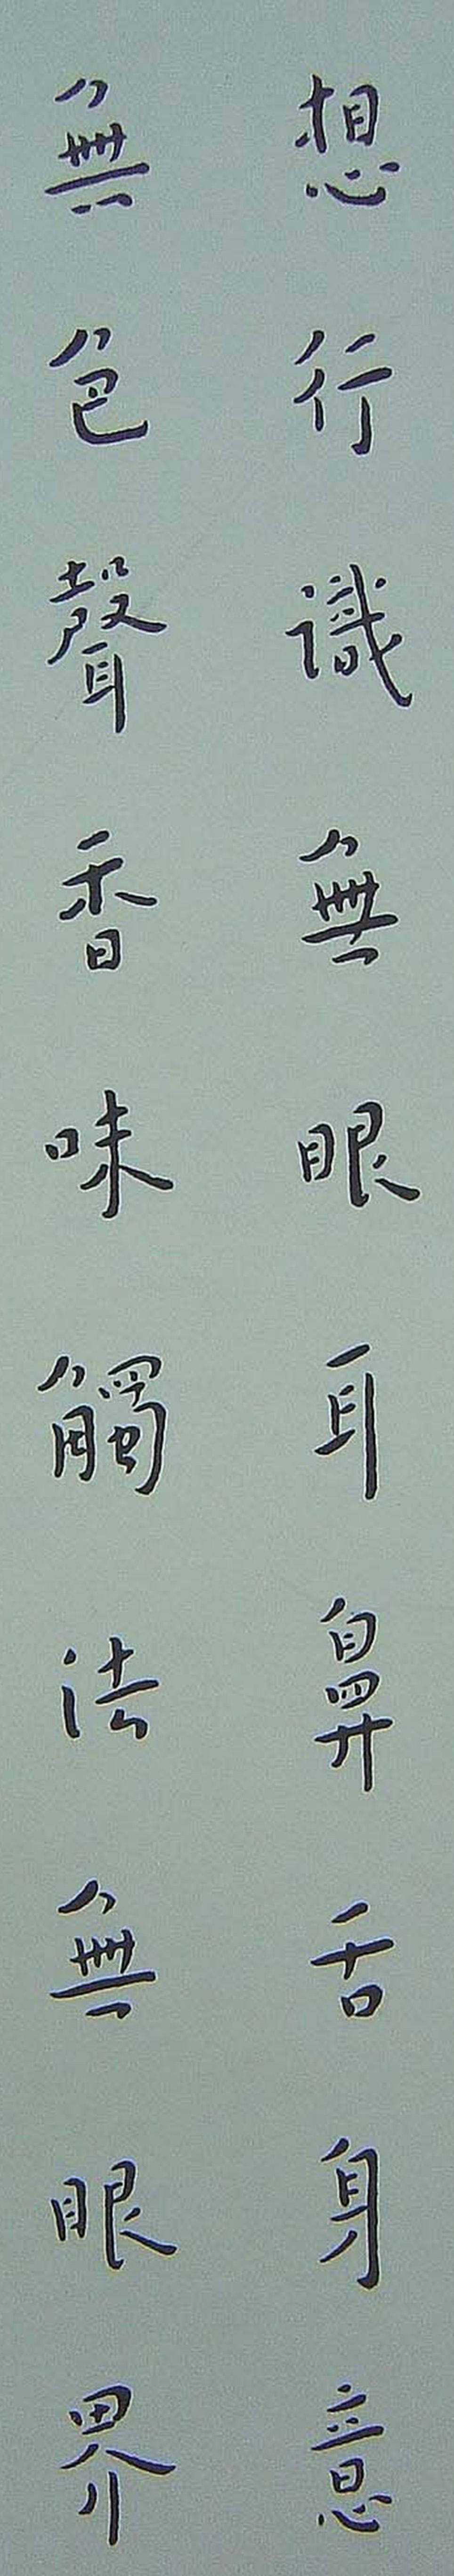 想行識無眼耳鼻舌身意
無色聲香味觸法無眼界